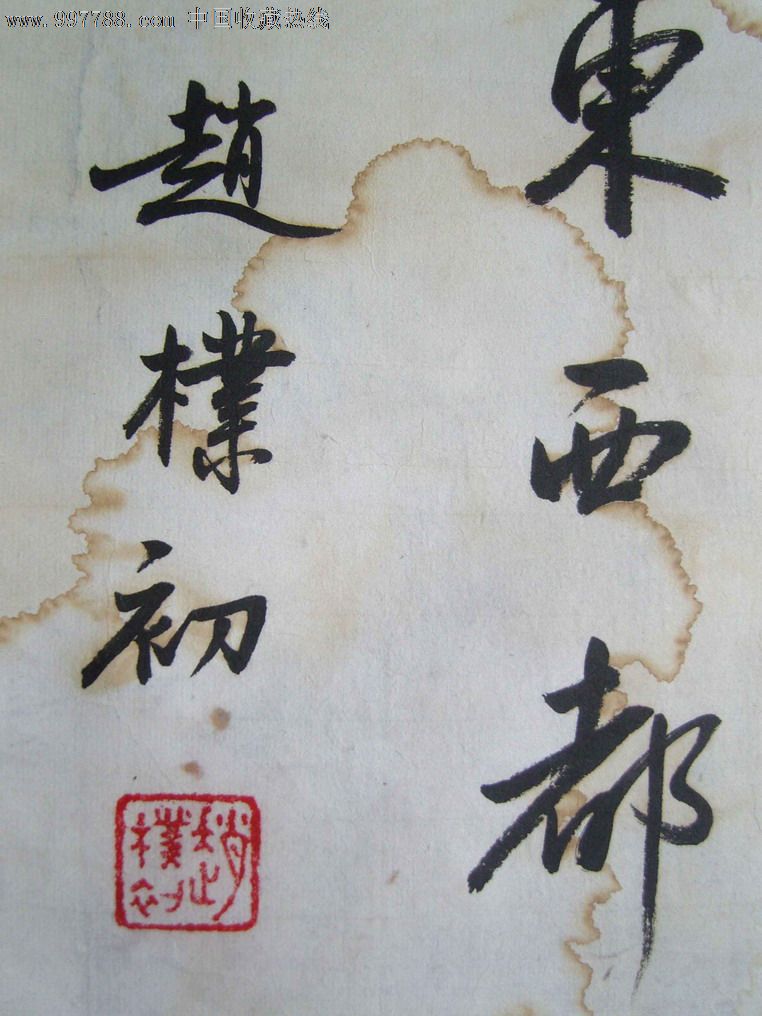 www.997788.com 中国收藏热线
東西都
趙樸初
趙樸初